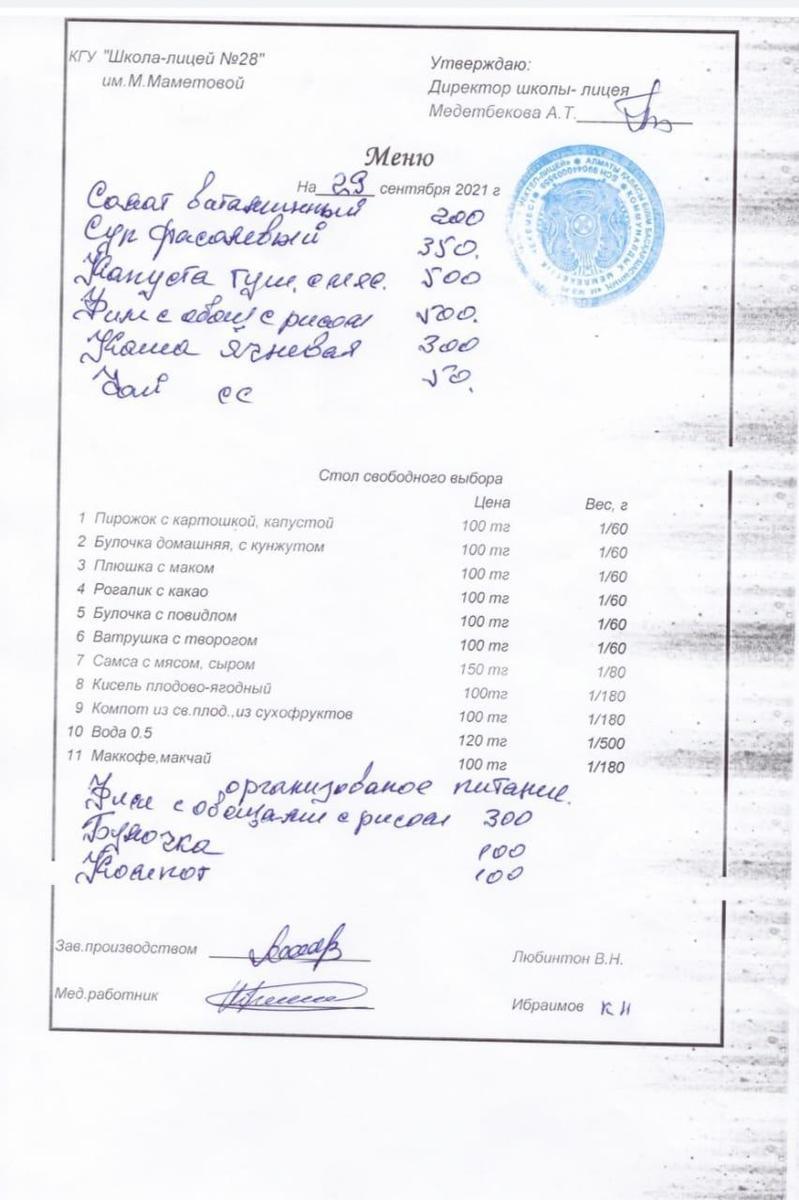 КГУ "Школа-лицей №28"
им.М.Маметовой
Утверждаю:
Директор школы- лицея
Медетбекова А.Т.
Меню
На 29 сентября 2021 г
Салат витаминный 200
Суп фасолевый 350.
Капуста туш. с мяс. 500
с овощ с рисом 500.
Каша ячневая 300
Чай сс 50.
Стол свободного выбора
Цена Вес, г
1 Пирожок с картошкой, капустой 100 тг 1/60
2 Булочка домашняя, с кунжутом 100 тг 1/60
3 Плюшка с маком 100 тг 1/60
4 Рогалик с какао 100 тг 1/60
5 Булочка с повидлом 100 тг 1/60
6 Ватрушка с творогом 100 тг 1/60
7 Самса с мясом, сыром 150 тг 1/80
8 Кисель плодово-ягодный 100тг 1/180
9 Компот из св.плод.,из сухофруктов 100 тг 1/180
10 Вода 0.5 120 тг 1/500
11 Маккофе,макчай 100 тг 1/180
организованое питание.
с овощами с рисом 300
Булочка 100
Компот 100
Зав.производством Любинтон В.Н.
Мед.работник Ибраимов К И